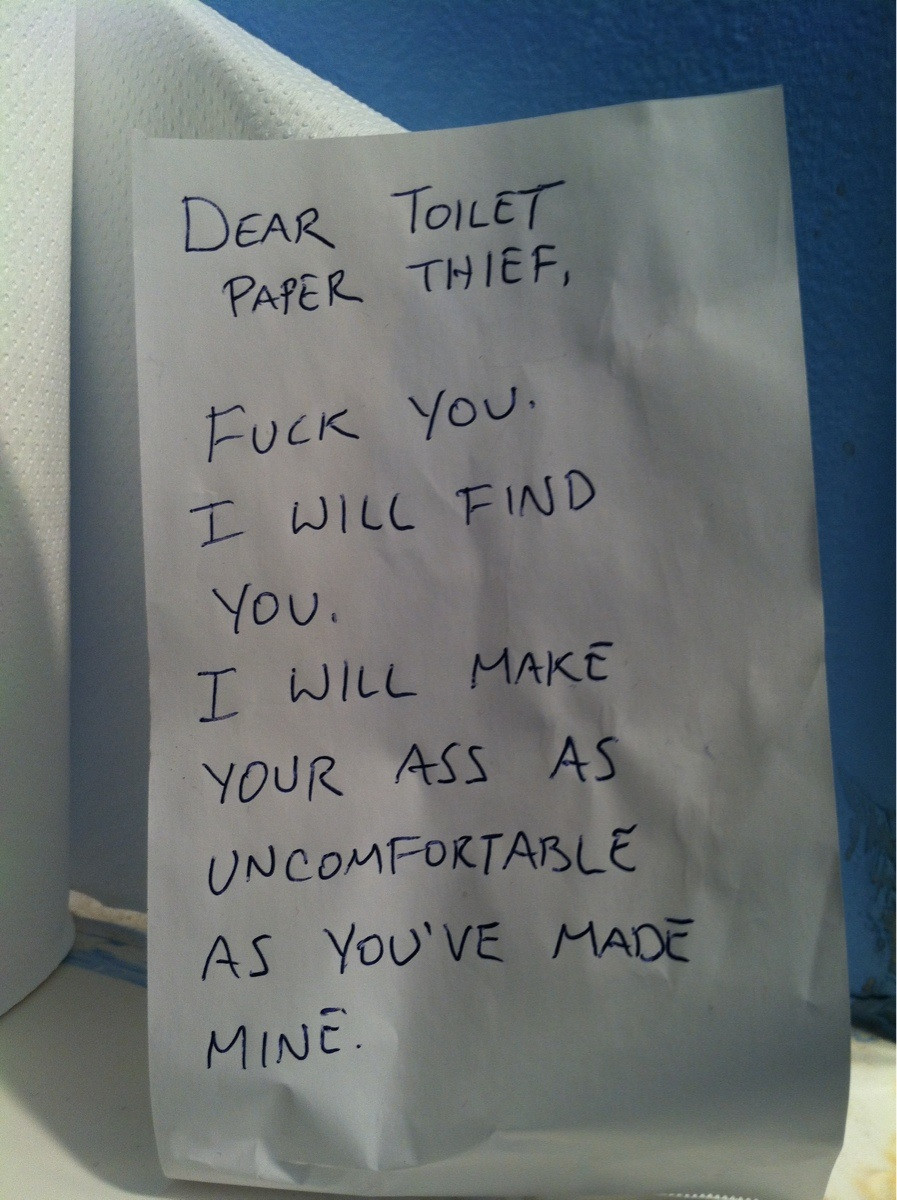 DEAR TOILET
PAPER THIEF,
FUCK YOU.
I WILL FIND
YOU.
I WILL MAKE
YOUR ASS AS
UNCOMFORTABLE
AS YOU'VE MADE
MINE.